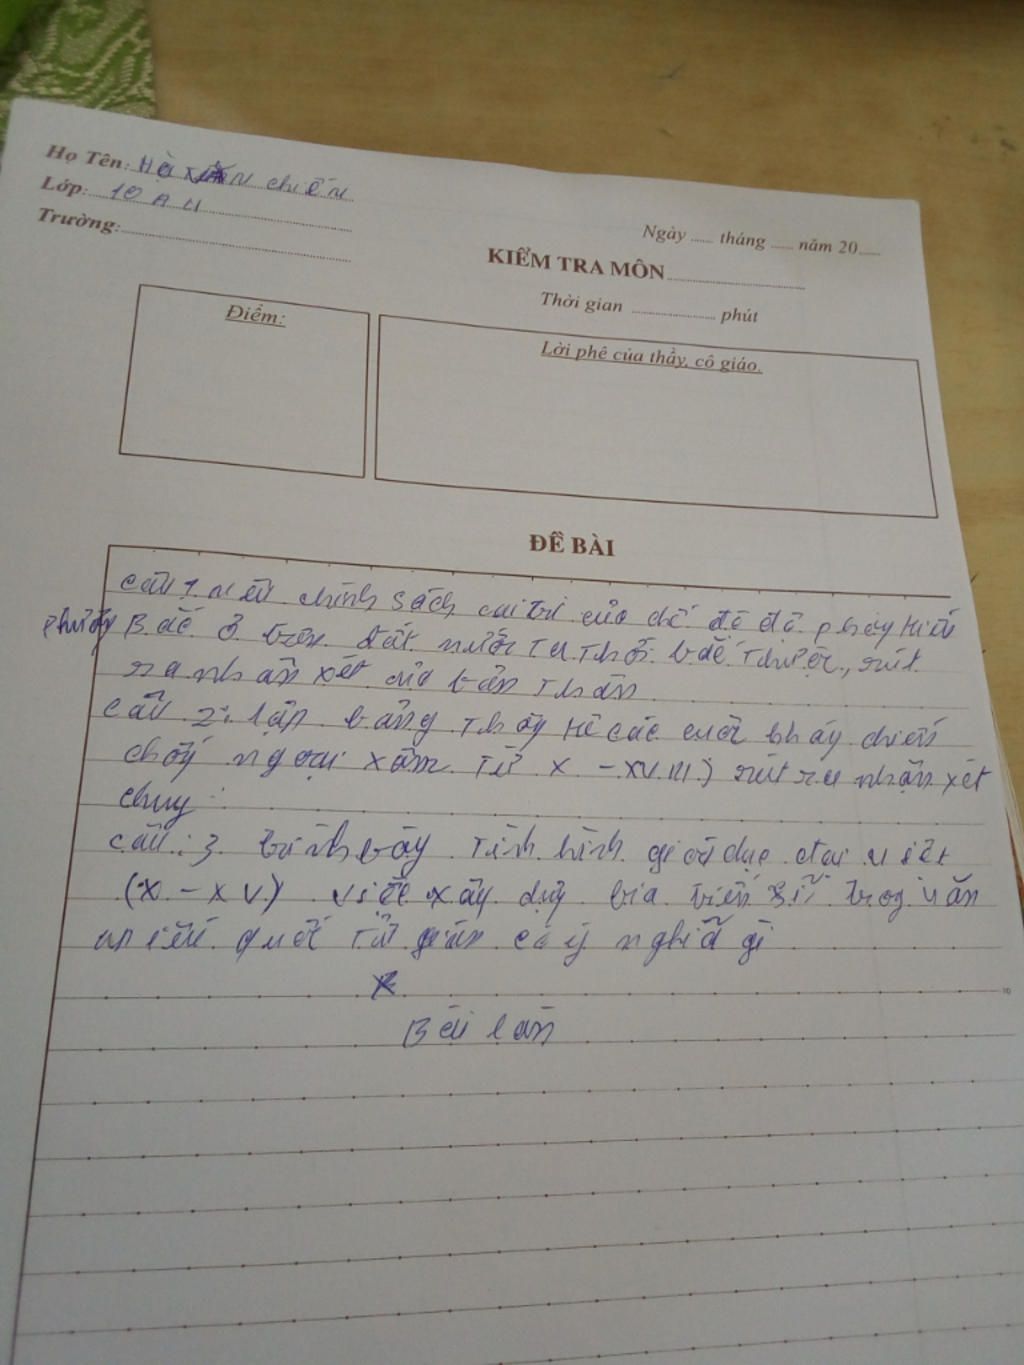 Họ Tên: Hà Văn chiến
Lớp: 10 A 4
Trường:
Ngày ..... tháng ..... năm 20.....
KIỂM TRA MÔN
Thời gian ............... phút
Điểm:
Lời phê của thầy, cô giáo.
ĐỀ BÀI
câu 1 nêu chính sách cai trị của chế độ đô phong kiến
phương Bắc ở trên đất nước ta thời bắc thuộc, rút
ra nhận xét của bản thân
câu 2: lập bảng thống kê các cuộc kháng chiến
chống ngoại xâm từ X - XVIII, rút ra nhận xét
chung:
câu: 3 trình bày tình hình giáo dục đại việt
(X - XV) việc xây dựng bia tiến sĩ trong văn
miếu quốc tử giám có ý nghĩa gì
Bài làm